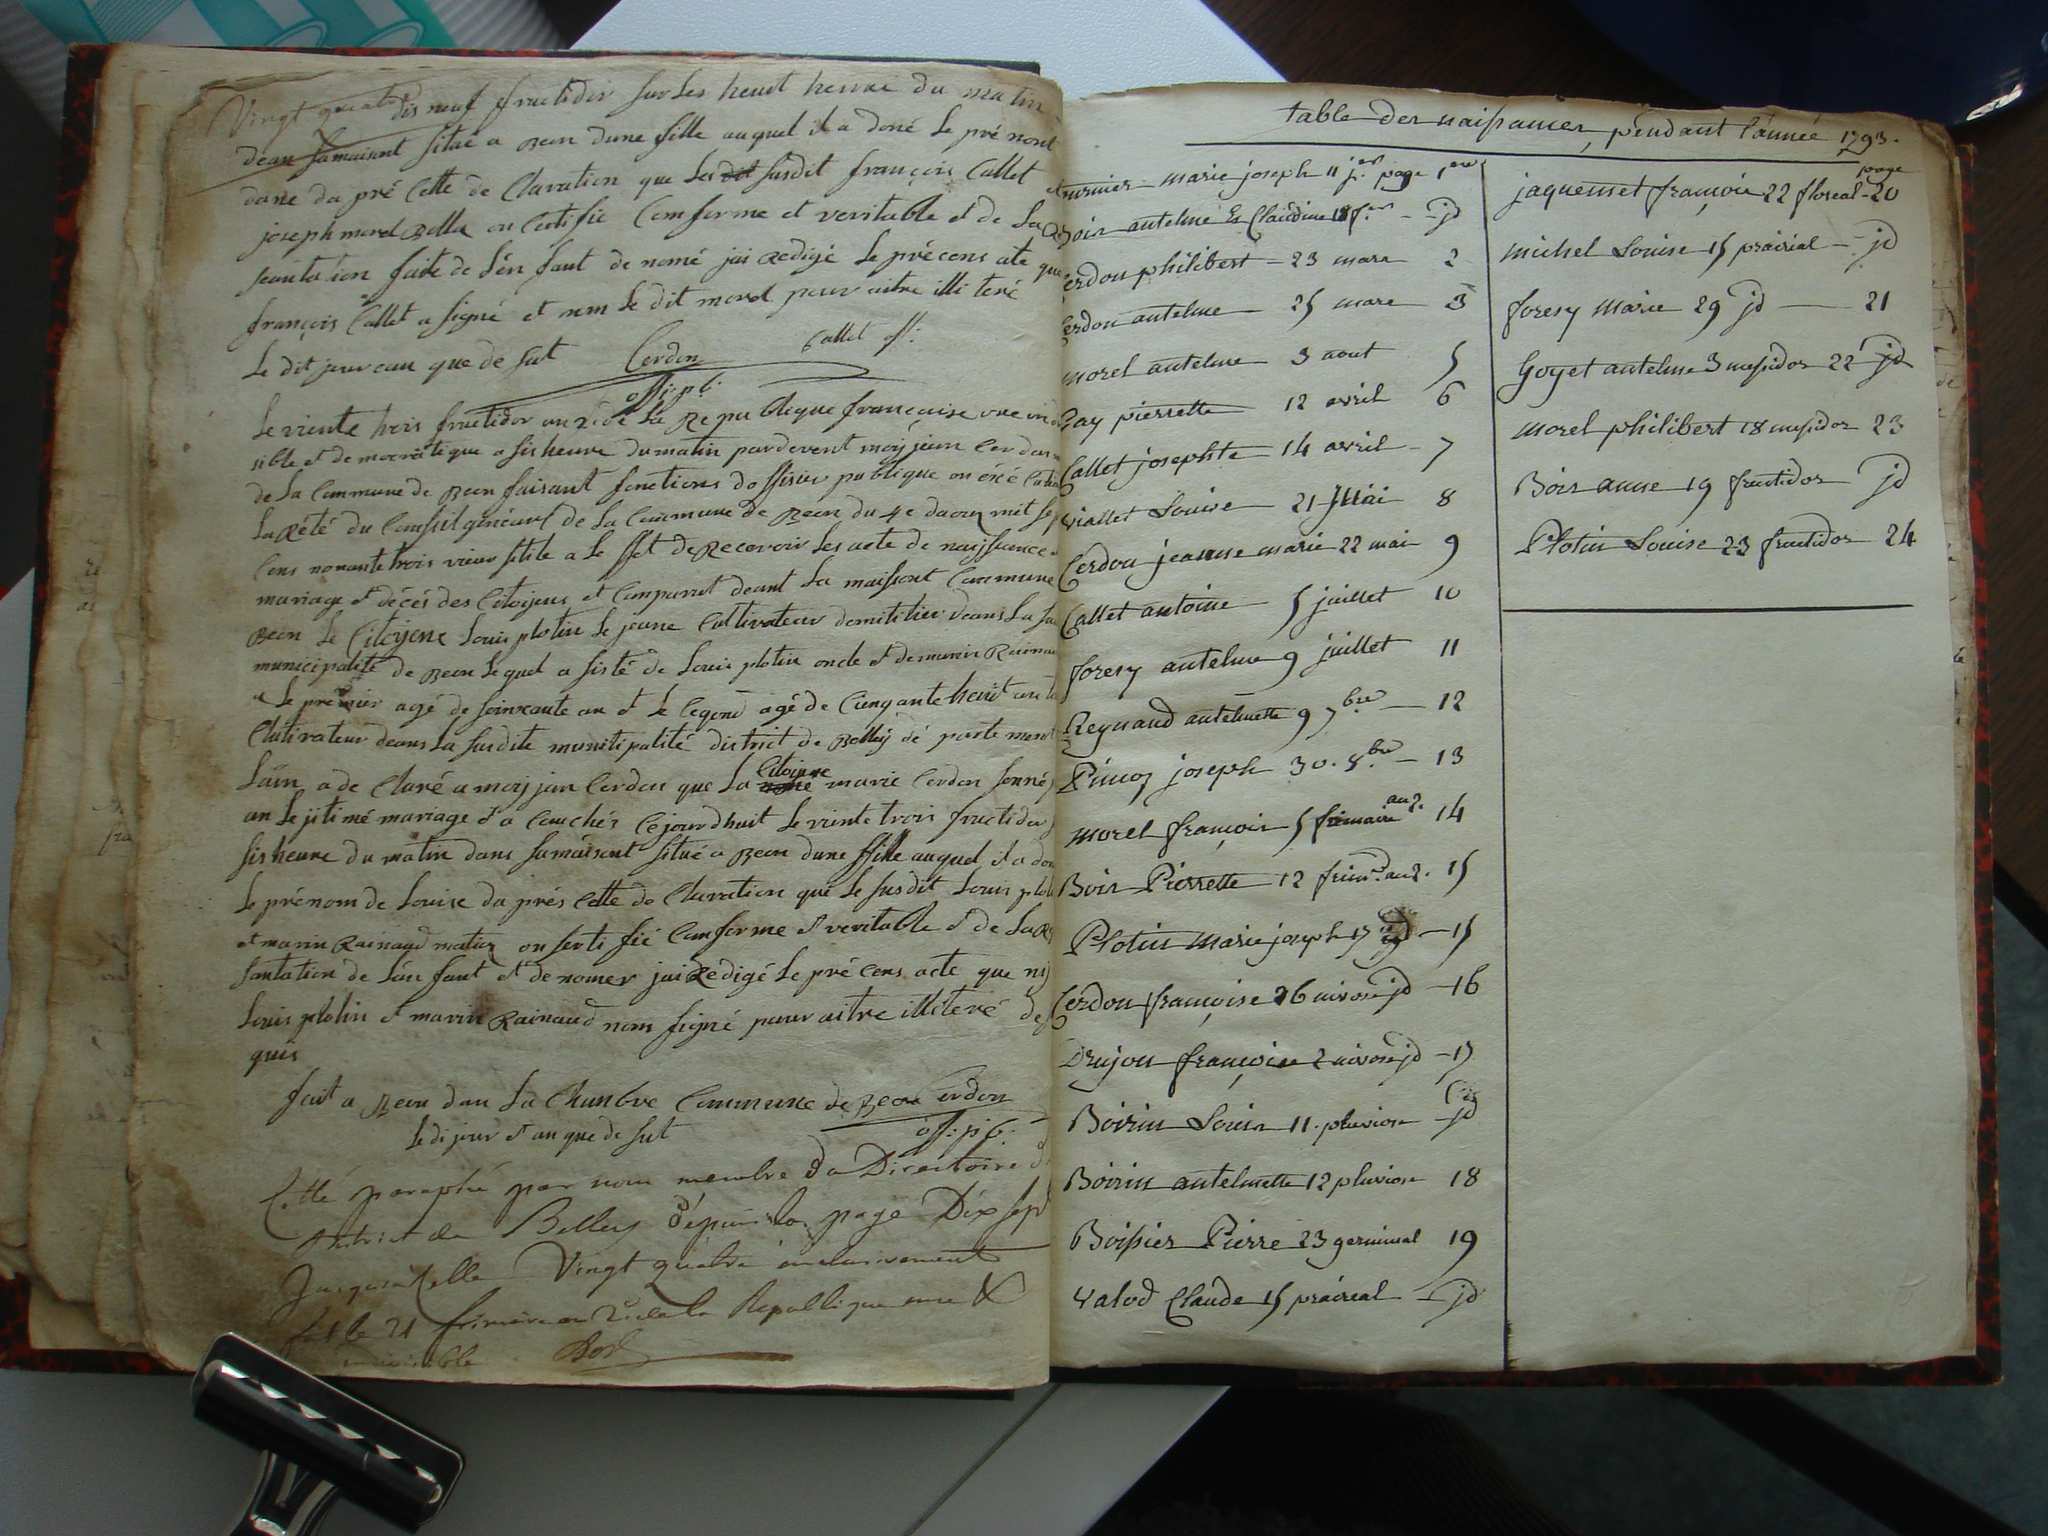 Vingt quatre
dis neuf fructidor sur Les heuit heurre du matin
dean samaisont situé a Beon dune fille auquel il a doné Le pré nont
dane da pré Cette de Claration que Les dit susdit françois Callet et
joseph morel Bella on Certifié Comforme et veritable et de La
santation faite de L'én fant de nomé jai Redigé Le précens acte que
françois Callet a signé et non Le dit morel pour aitre illi teré
Le dit jour ean que de sut Cerdon Callet off:
offi: p.b:
Le vinte trois fructidor an 2 de La Repu blique françoise une indi
sible et democratique a sis heure du matin pardevent moij jean Cerdon
de La Commune de Beon faisant fonctions dofficier publique
La Rété du Conseil général de La Commune de Beon du 4e daoux mil sep
Cens nonante trois vieux stile a Le ffet de Recevoir Les acte de naissance
mariage et décés des Citoijens et Comparut deant La maissont Commune
Beon Le Citoijene Louis plotin Le jeune Cultivateur domitilier deans La su
municipalité de Beon Lequel a sisté de Louis plotin oncle et de marin Rainau
Le premier agé de soinxante an et Le Cegond agé de Cinquante heuit an
Cultivateur deans La susdite munitipalité district de Belleij dé partement
Lain a de Claré a moij jean Cerdon que La Citoiene marie Cerdon
an Le jitimé mariage et a Couchér Cejourdhuit Le vinte trois fructidor
sis heure du matin dans samaisont situé a Beon dune ffille auquel il a don
Le prénom de Louise da prés Cette de Claration que Le susdit Louis plot
et marin Rainaud on serti fié Comforme et veritable et de La
santation de Lén fant et de nomer jai Redigé Le précens acte que nij
Louis plotin et marin Rainaud nom signé pour aitre illiteré de
quis
fait a Beon dan La Chambre Commune de Beon Cerdon
Le di jour et an que de sut off: p.b:
Cotté paraphé par nous membre du Directoire d
district de Belley dépuis la page Dix sept
Jusqu'a Celle Vingt quatre inclusivement
fait le 21 frimaire an 2 de la Republique une &
indivisible Bo
table des naissances, pendant l'année 1793.
marie joseph 11 j.er page 1ere
Bois antelme & Claudine 18 f.er — jd
Cerdon philibert — 23 mars 2
Cerdon antelme — 25 mars — 3
morel antelme — 3 aout 5
Gay pierrette 12 avril 6
Callet josephte — 14 avril — 7
Viallet Louise — 21 Mai 8
Cerdon jeanne marie 22 mai 9
Callet antoine 5 juillet 10
foresy antelme 9 juillet 11
Reynaud antelmette 9 7bre — 12
Pinoz joseph 30. 8bre — 13
morel françois 5 frimaire an 2. 14
Bois Pierrette 12 frim.re an 2. 15
Plotin Marie joseph 17 jd — 15
Cerdon françoise 26 nivose jd — 16
Drujon françoise 2 nivose jd — 17
Boirin Louis 11. pluviose — jd
Boirin antelmette 12 pluviose 18
Boissier Pierre 23 germinal 19
Valod Claude 15 praireal — jd
page
jaquemet françois 22 floreal — 20
michel Louise 15 prairial — jd
foresy Marie 29 jd — 21
Goyet antelme 3 messidor 22 jd
morel philibert 18 messidor 23
Bois anne 19 fructidor jd
Plotin Louise 23 fructidor 24